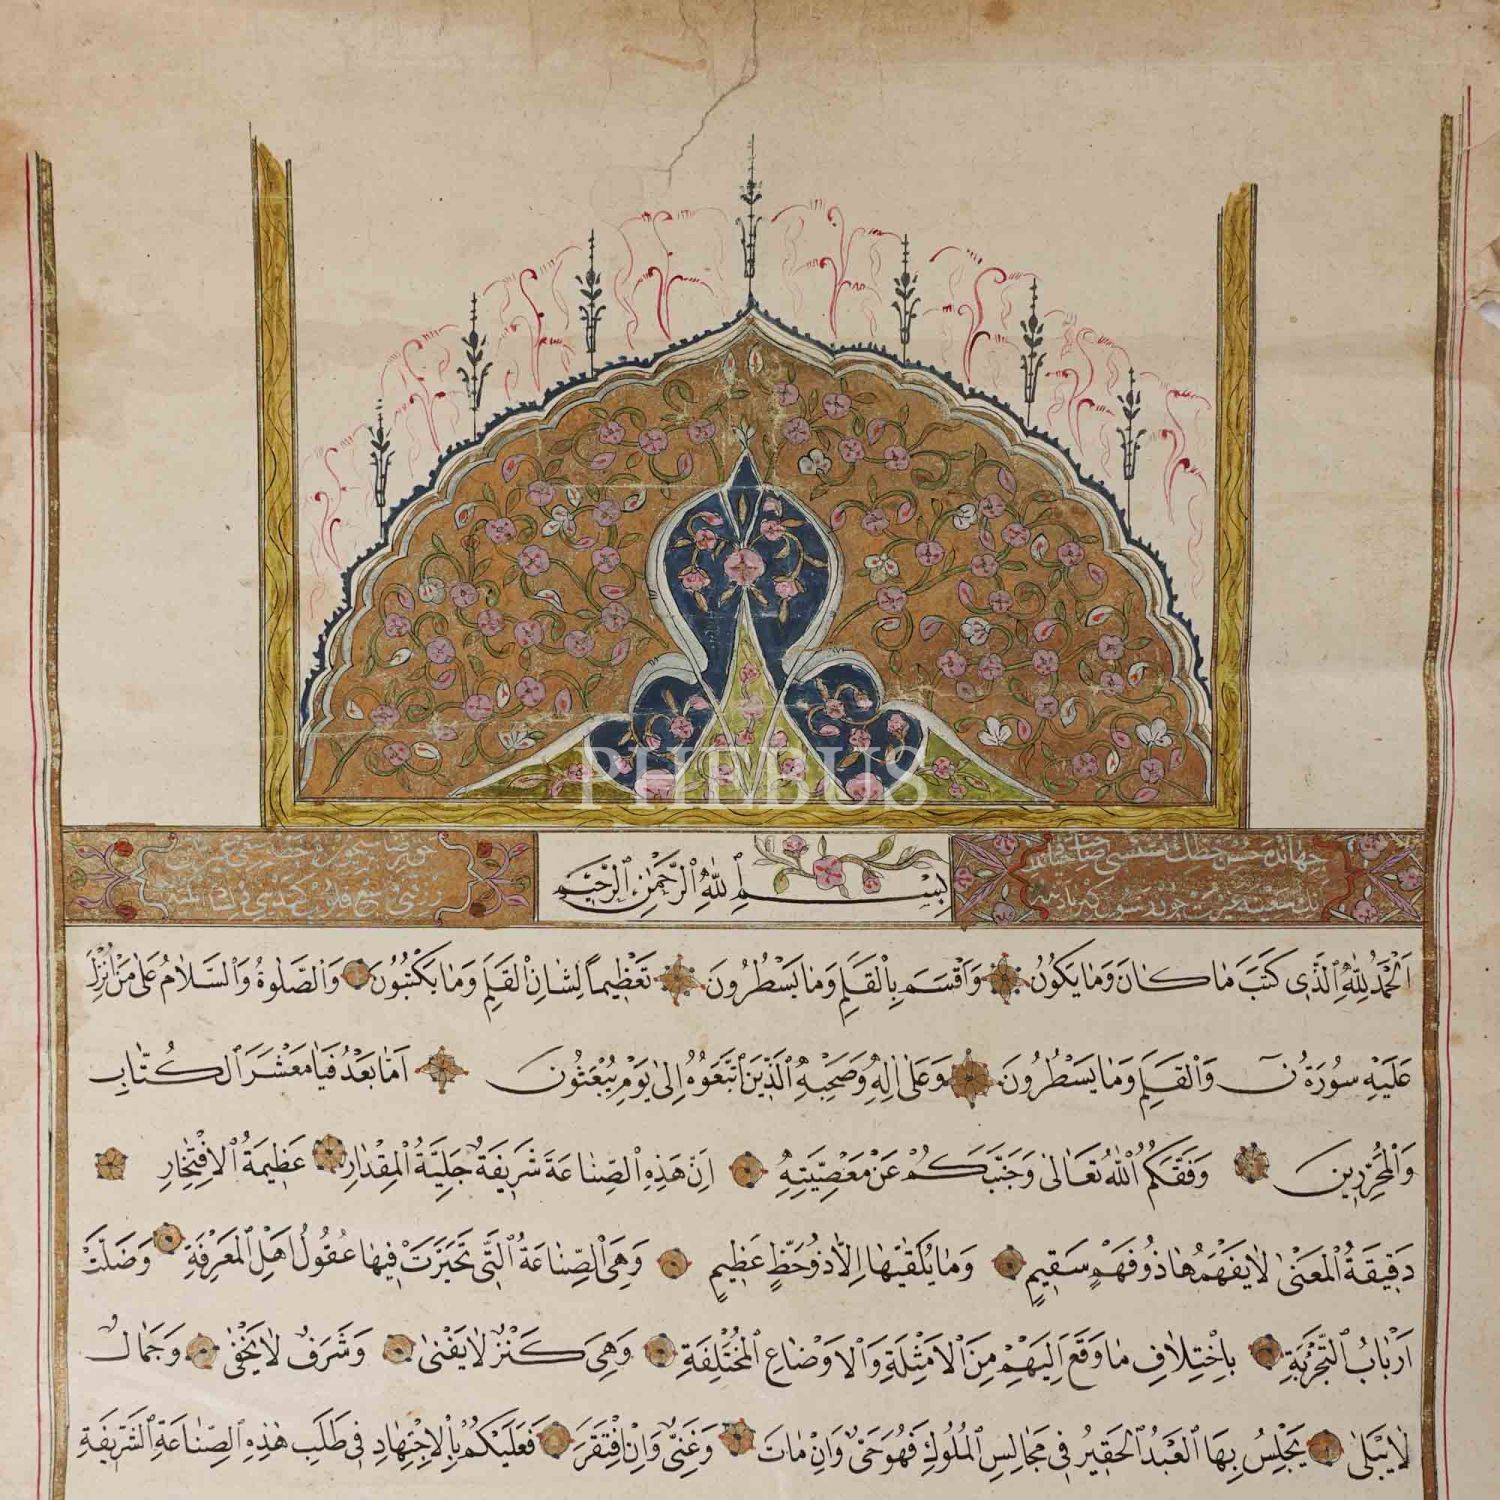 بِسْمِ اللّٰهِ الرَّحْمٰنِ الرَّحِيْمِ
PHEBUS
اَلْحَمْدُ لِلّٰهِ الَّذِى كَتَبَ مَا كَانَ وَمَا يَكُونُ وَاَقْسَمَ بِالْقَلَمِ وَمَا يَسْطُرُونَ تَعْظِيماً لِشَانِ الْقَلَمِ وَمَا يَكْتُبُونَ وَالصَّلٰوةُ وَالسَّلَامُ عَلٰى مَنْ اُنْزِلَ
عَلَيْهِ سُورَةُ نٓ وَالْقَلَمِ وَمَا يَسْطُرُونَ وَعَلٰى اٰلِهِ وَصَحْبِهِ الَّذِينَ اتَّبَعُوهُ اِلٰى يَوْمِ يُبْعَثُونَ اَمَّا بَعْدُ فَيَا مَعْشَرَ الْكُتَّابِ
وَالْمُحَرِّرِينَ وَفَّقَكُمُ اللّٰهُ تَعَالٰى وَجَنَّبَكُمْ عَنْ مَعْصِيَتِهِ اِنَّ هٰذِهِ الصِّنَاعَةَ شَرِيفَةٌ جَلِيَّةُ الْمِقْدَارِ عَظِيمَةُ الْاِفْتِخَارِ
دَقِيقَةُ الْمَعْنٰى لَا يَفْهَمُهَا ذُو فَهْمٍ سَقِيمٍ وَمَا يُلَقّٰيهَا اِلَّا ذُو حَظٍّ عَظِيمٍ وَهِىَ الصِّنَاعَةُ الَّتِى تَحَيَّرَتْ فِيهَا عُقُولُ اَهْلِ الْمَعْرِفَةِ وَضَلَّتْ
اَرْبَابُ التَّجْرِبَةِ بِاخْتِلَافِ مَا وَقَعَ اِلَيْهِمْ مِنَ الْاَمْثِلَةِ وَالْاَوْضَاعِ الْمُخْتَلِفَةِ وَهِىَ كَنْزٌ لَا يَفْنٰى وَشَرَفٌ لَا يَخْفٰى وَجَمَالٌ
لَا يَبْلٰى يَجْلِسُ بِهَا الْعَبْدُ الْحَقِيرُ فِى مَجَالِسِ الْمُلُوكِ فَهُوَ حَىٌّ وَاِنْ مَاتَ وَغَنِىٌّ وَاِنِ افْتَقَرَ فَعَلَيْكُمْ بِالْاِجْتِهَادِ فِى طَلَبِ هٰذِهِ الصِّنَاعَةِ الشَّرِيفَةِ